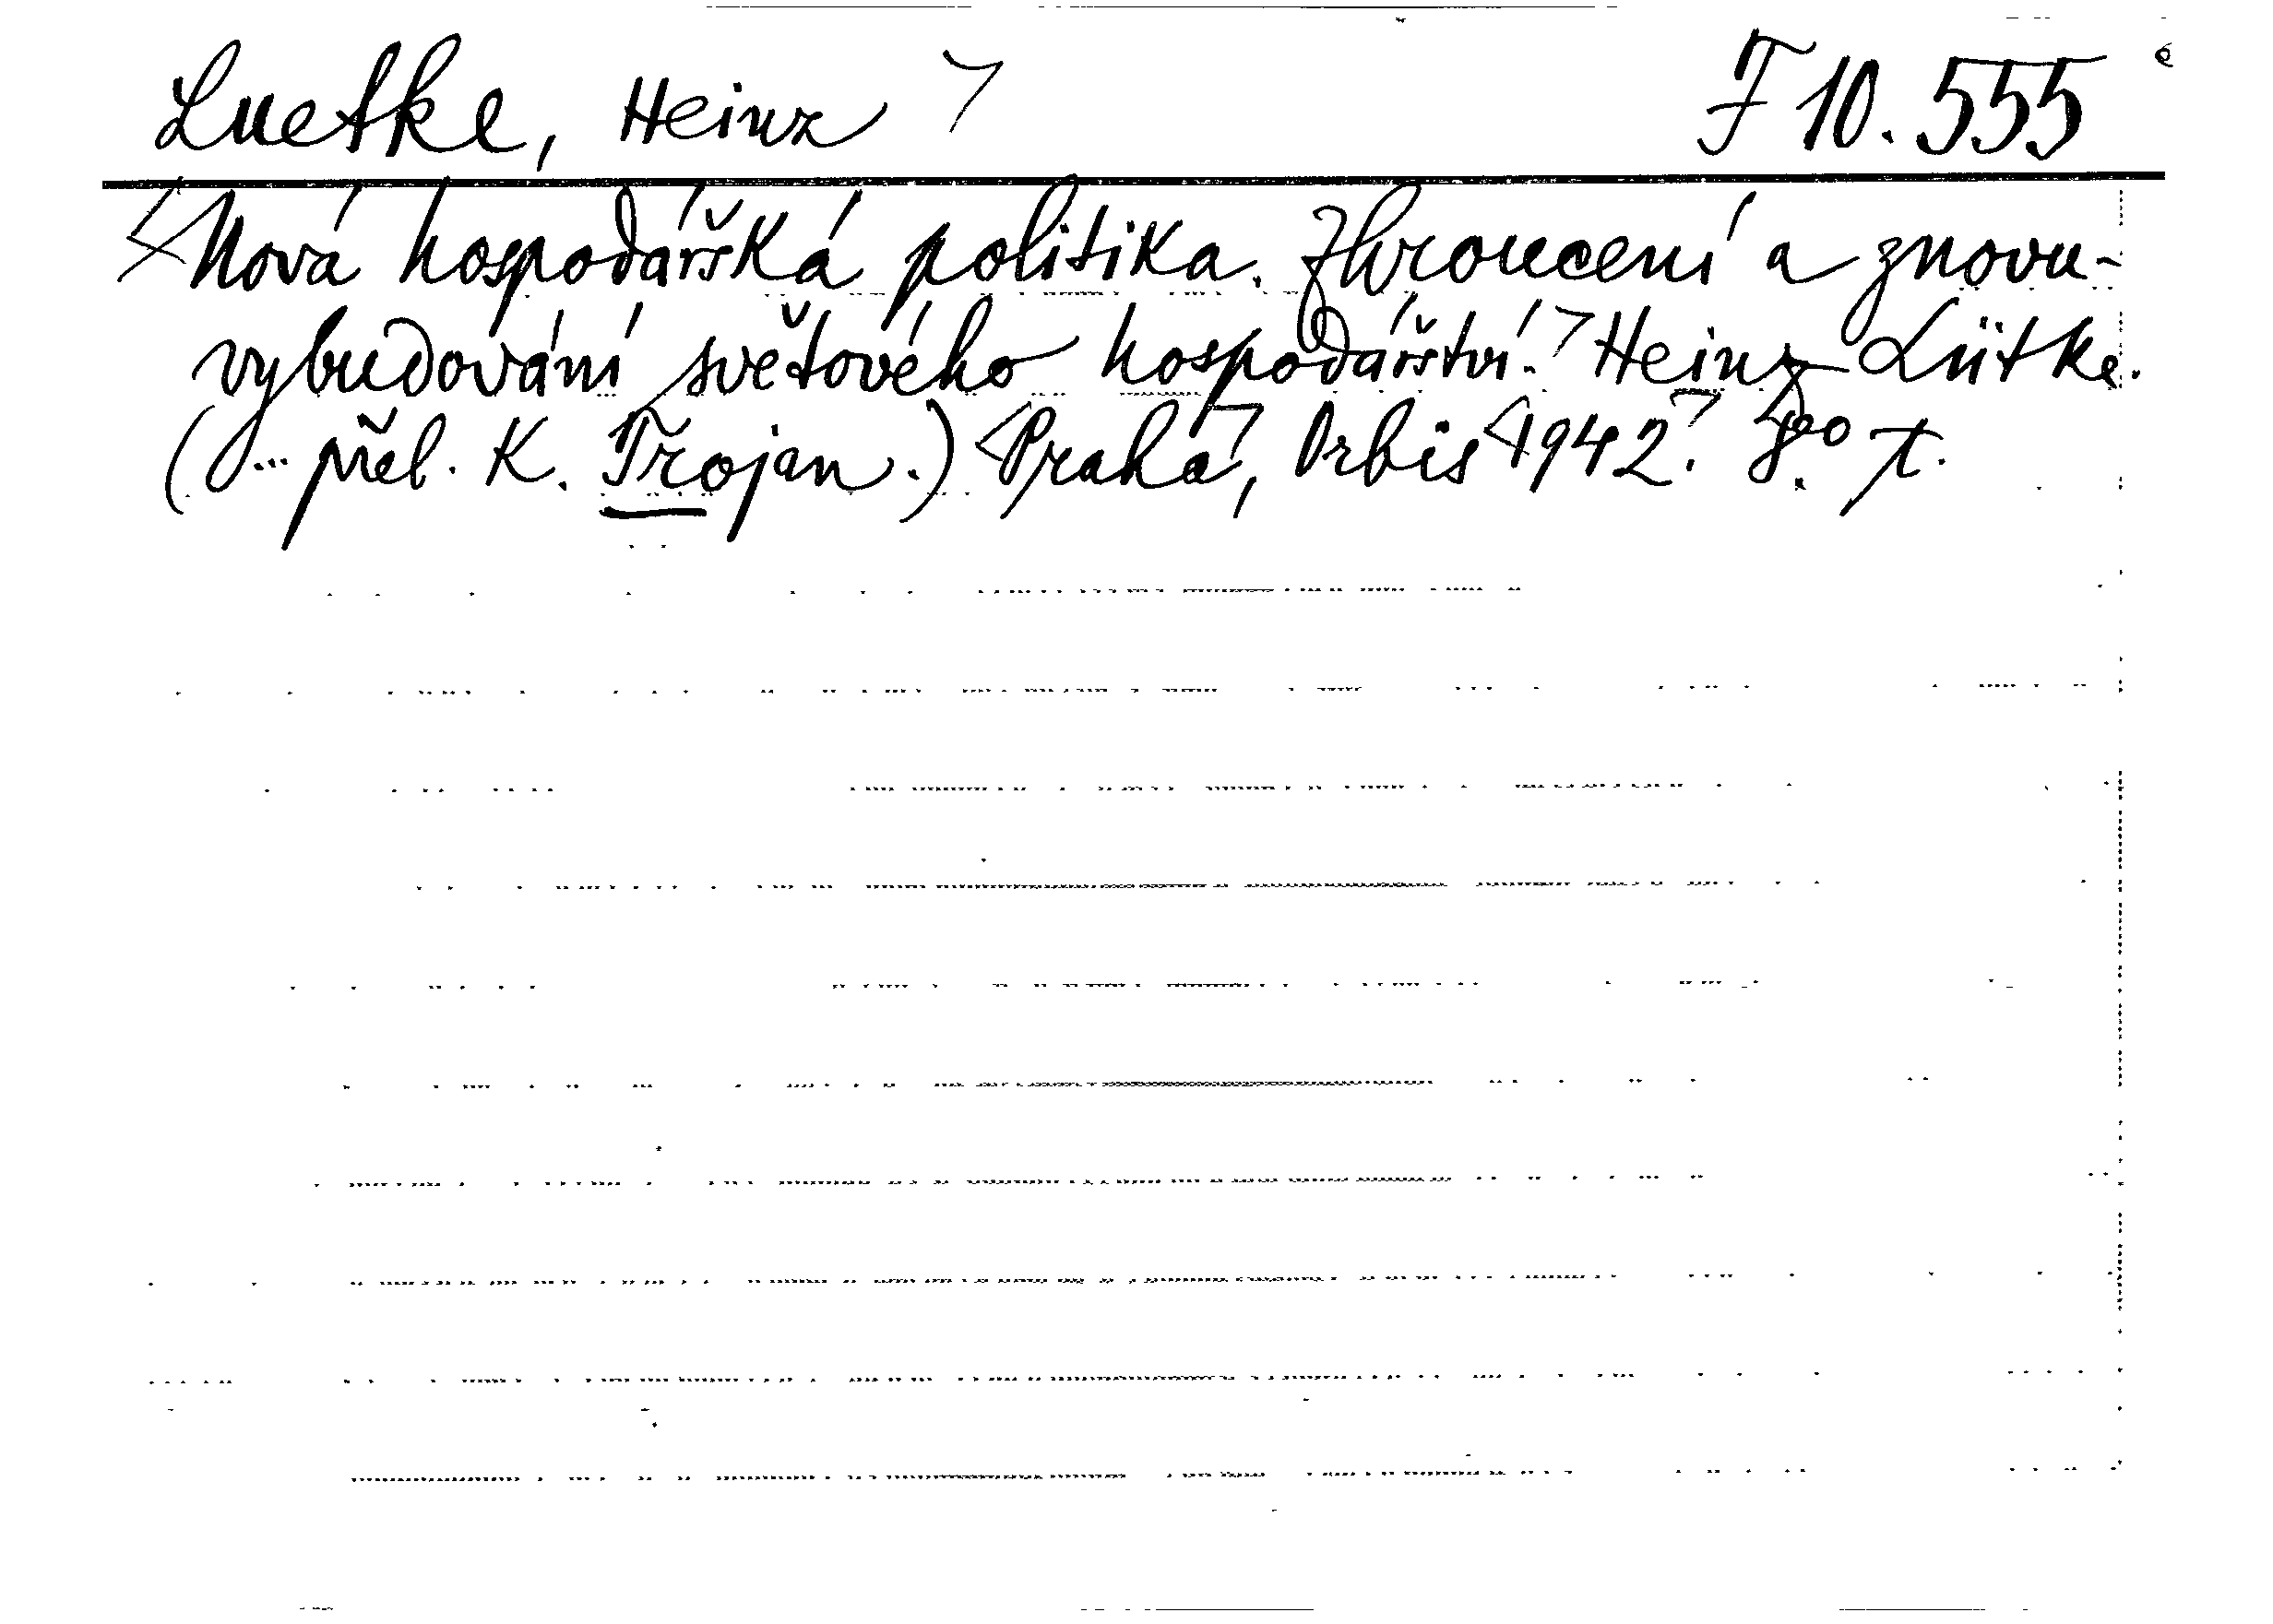 Luetke, Heinz F 10.555
Nová hospodářská politika. Zhroucení a znovu-
vybudování světového hospodářství. Heinz Lütke.
(... přel. K. Trojan.) Praha, Orbis 1942. 8°